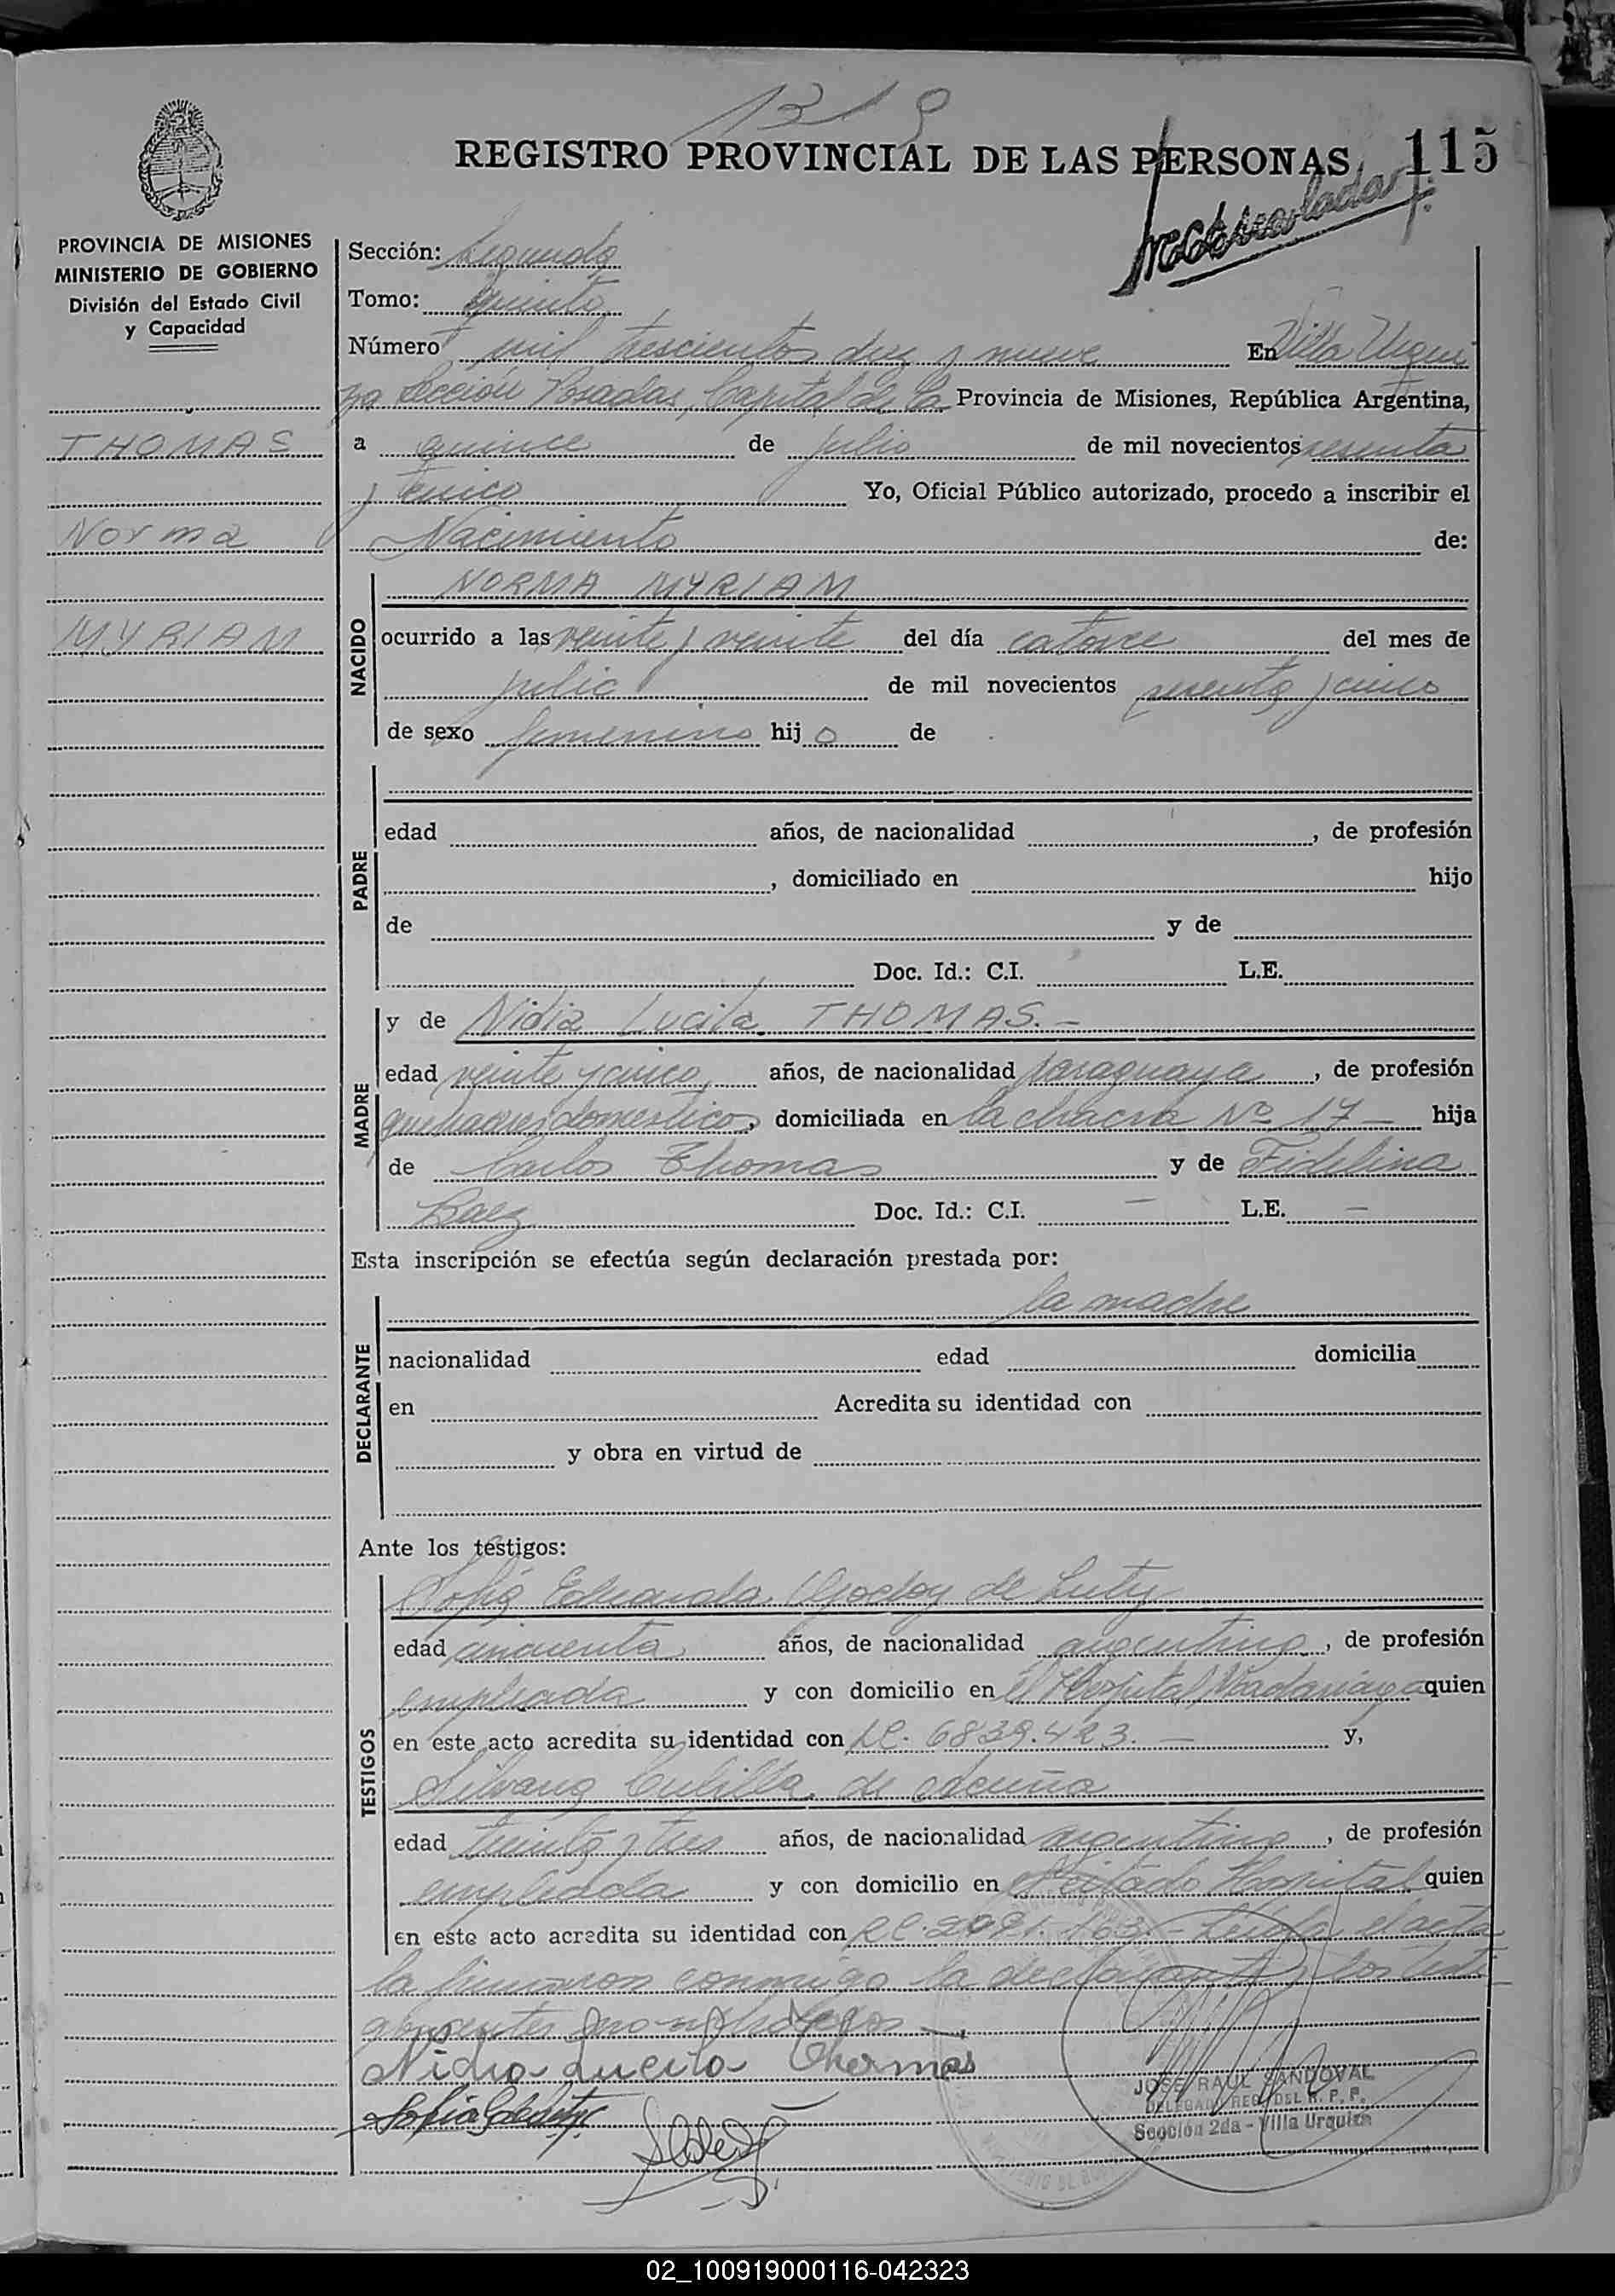 1319
REGISTRO PROVINCIAL DE LAS PERSONAS 115
PROVINCIA DE MISIONES
MINISTERIO DE GOBIERNO
División del Estado Civil
y Capacidad
THOMAS
Norma
MYRIAM
Sección: Segunda
Tomo: quinto
Número mil trescientos diez y nueve En Villa Urqui
za Sección Posadas, Capital de la Provincia de Misiones, República Argentina,
a quince de julio de mil novecientos sesenta
y cinco Yo, Oficial Público autorizado, procedo a inscribir el
Nacimiento de:
NACIDO
NORMA MYRIAM
ocurrido a las veinte y veinte del día catorce del mes de
julio de mil novecientos sesenta y cinco
de sexo femenino hijo de
PADRE
edad años, de nacionalidad , de profesión
, domiciliado en hijo
de y de
Doc. Id.: C.I. L.E.
MADRE
y de Nidia Lucila THOMAS.-
edad veinte y cinco años, de nacionalidad paraguaya, de profesión
quehaceres domesticos, domiciliada en la chacra Nº 17 - hija
de Carlos Thomas y de Fidelina
Baez Doc. Id.: C.I. - L.E. -
Esta inscripción se efectúa según declaración prestada por:
DECLARANTE
la madre
nacionalidad edad domicilia
en Acredita su identidad con
y obra en virtud de
Ante los testigos:
TESTIGOS
Sofía Eduarda Godoy de Luty
edad cincuenta años, de nacionalidad argentina, de profesión
empleada y con domicilio en el Hospital Madariaga quien
en este acto acredita su identidad con LC. 6839.423. - y,
Silvana Cubilla de Acuña
edad treinta y tres años, de nacionalidad argentina, de profesión
empleada y con domicilio en el citado Hospital quien
en este acto acredita su identidad con LC. 163.- Leída el acta
la firmaron conmigo la declarante y los testi
gos
Nidia Lucila Thomas
JOSE RAUL SANDOVAL
DELEGADO REG. DEL R. P. P.
Sección 2da - Villa Urquiza
02_100919000116-042323